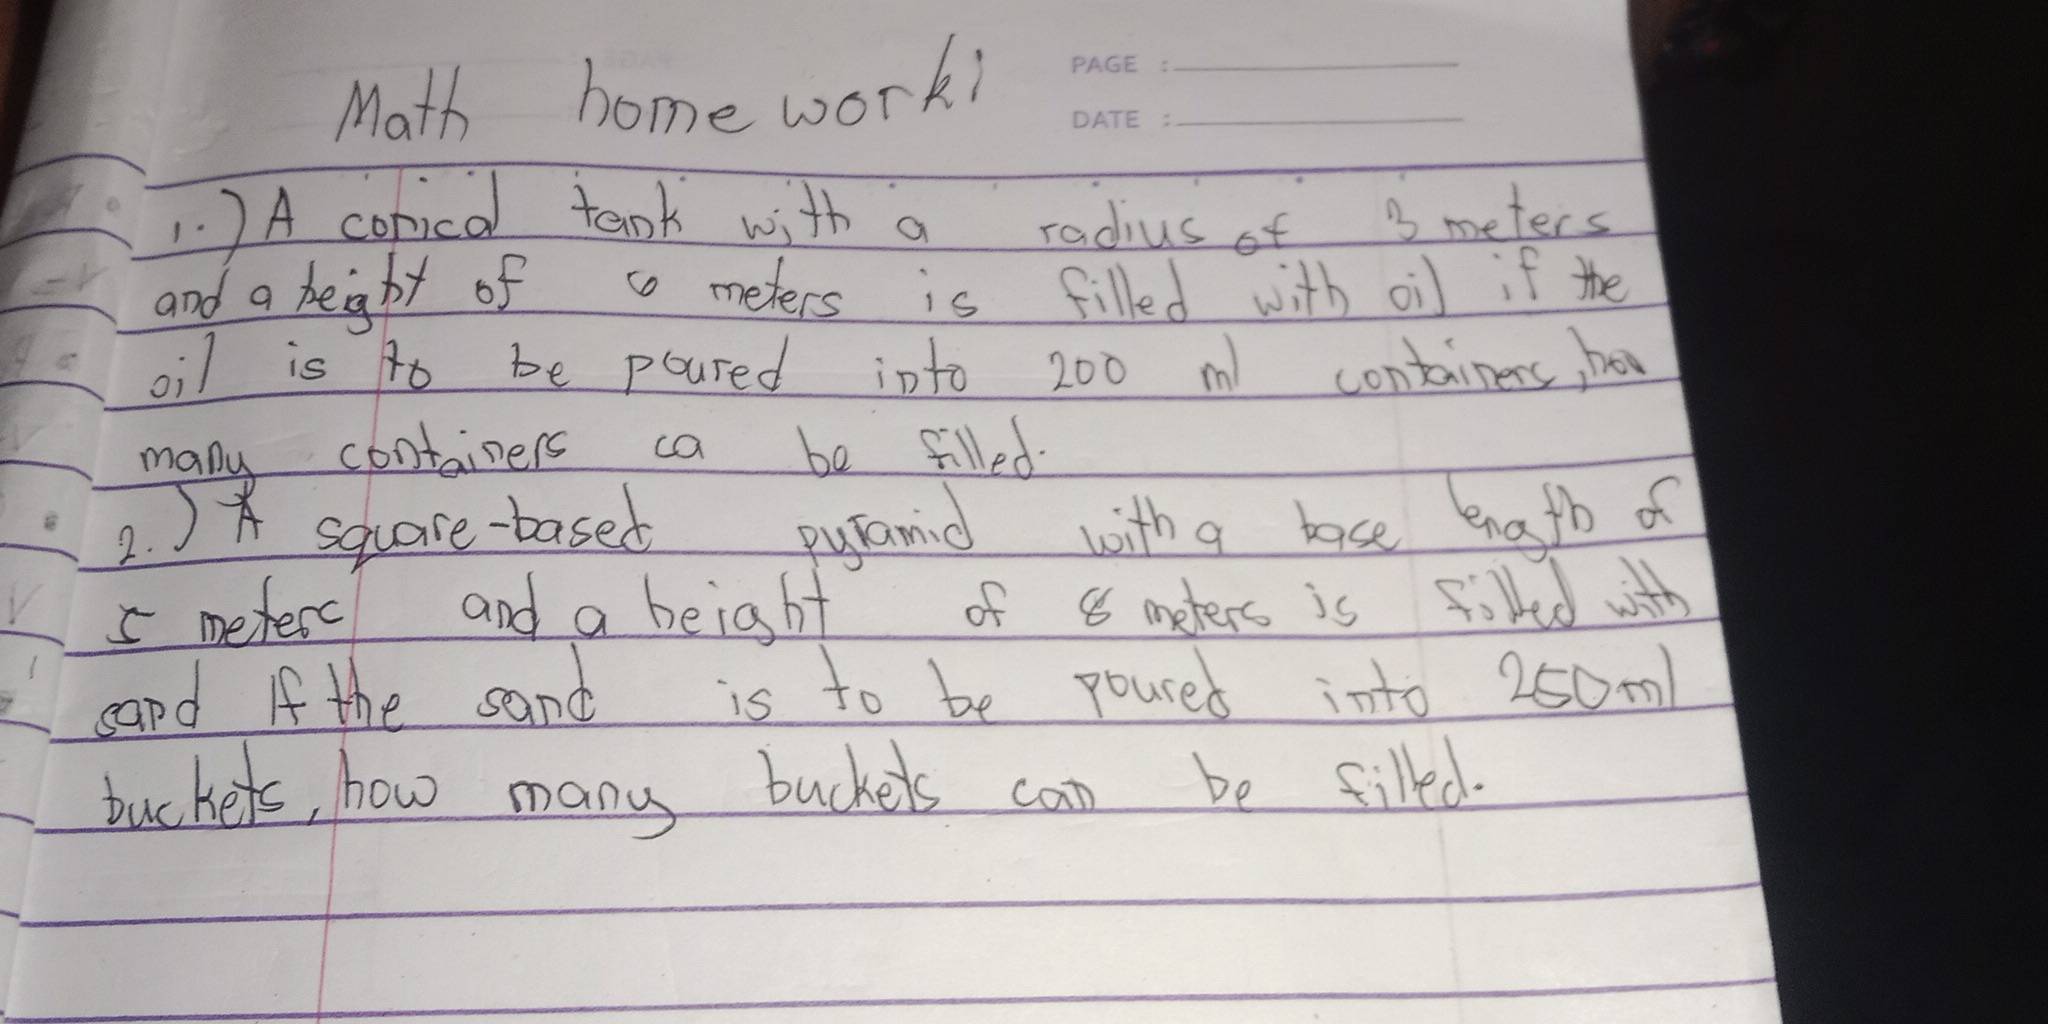 Math homework:
PAGE :
DATE :
1.) A conical tank with a radius of 3 meters
and a height of 6 meters is filled with oil if the
oil is to be poured into 200 ml containers, how
many containers ca be filled.
2.) A square-based pyramid with a base length of
5 meters and a height of 8 meters is filled with
sand If the sand is to be poured into 250ml
buckets, how many buckets can be filled.